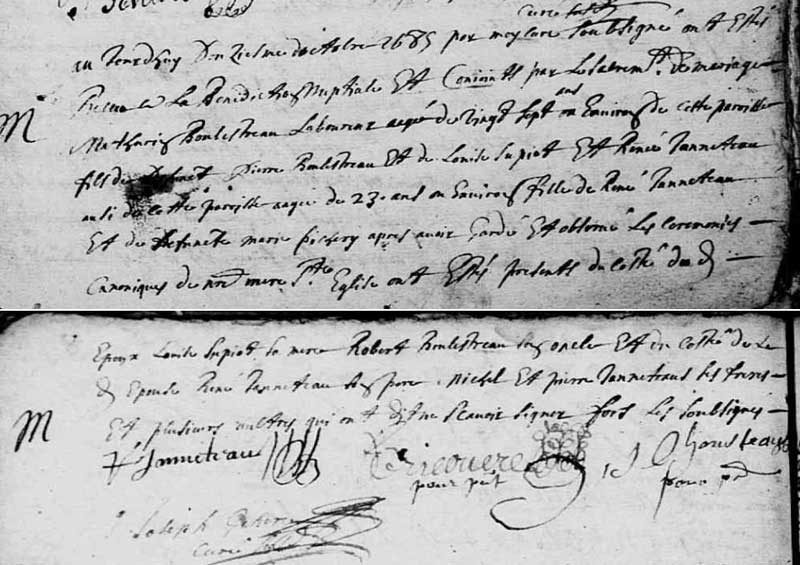 curé sub
au Jourdhuy Onziesme doctobre 1685 par moy curé soubsigné ont Estés
Receu La Benediction nuptiale Et Conioints par Le sacremt. de mariage
M
Mathurin Boulestreau Laboureur aagé de vingt sept ans ou Environ de cette parroisse
fils de defunct Pierre Boulestreau Et de Louise Supiot Et Reneé Janneteau
ausi de cette parroisse aagee de 23 ans ou Environ fille de René Janneteau
Et de defuncte marie apres avoir Gardé Et observé Les Ceremonies
Canoniques de nre mere ste Eglise ont Estés presents du costé du d
Epoux Louise Supiot sa mere Robert Boulestreau son oncle Et du costé de La
d Epouse René Janneteau son pere Michel Et pierre Jannetaus ses freres
M
Et plusieurs aultres qui ont dit ne scavoir signer fors Les soubsignes
Janneteau
pour pnt
pour pnt
Joseph
Curé